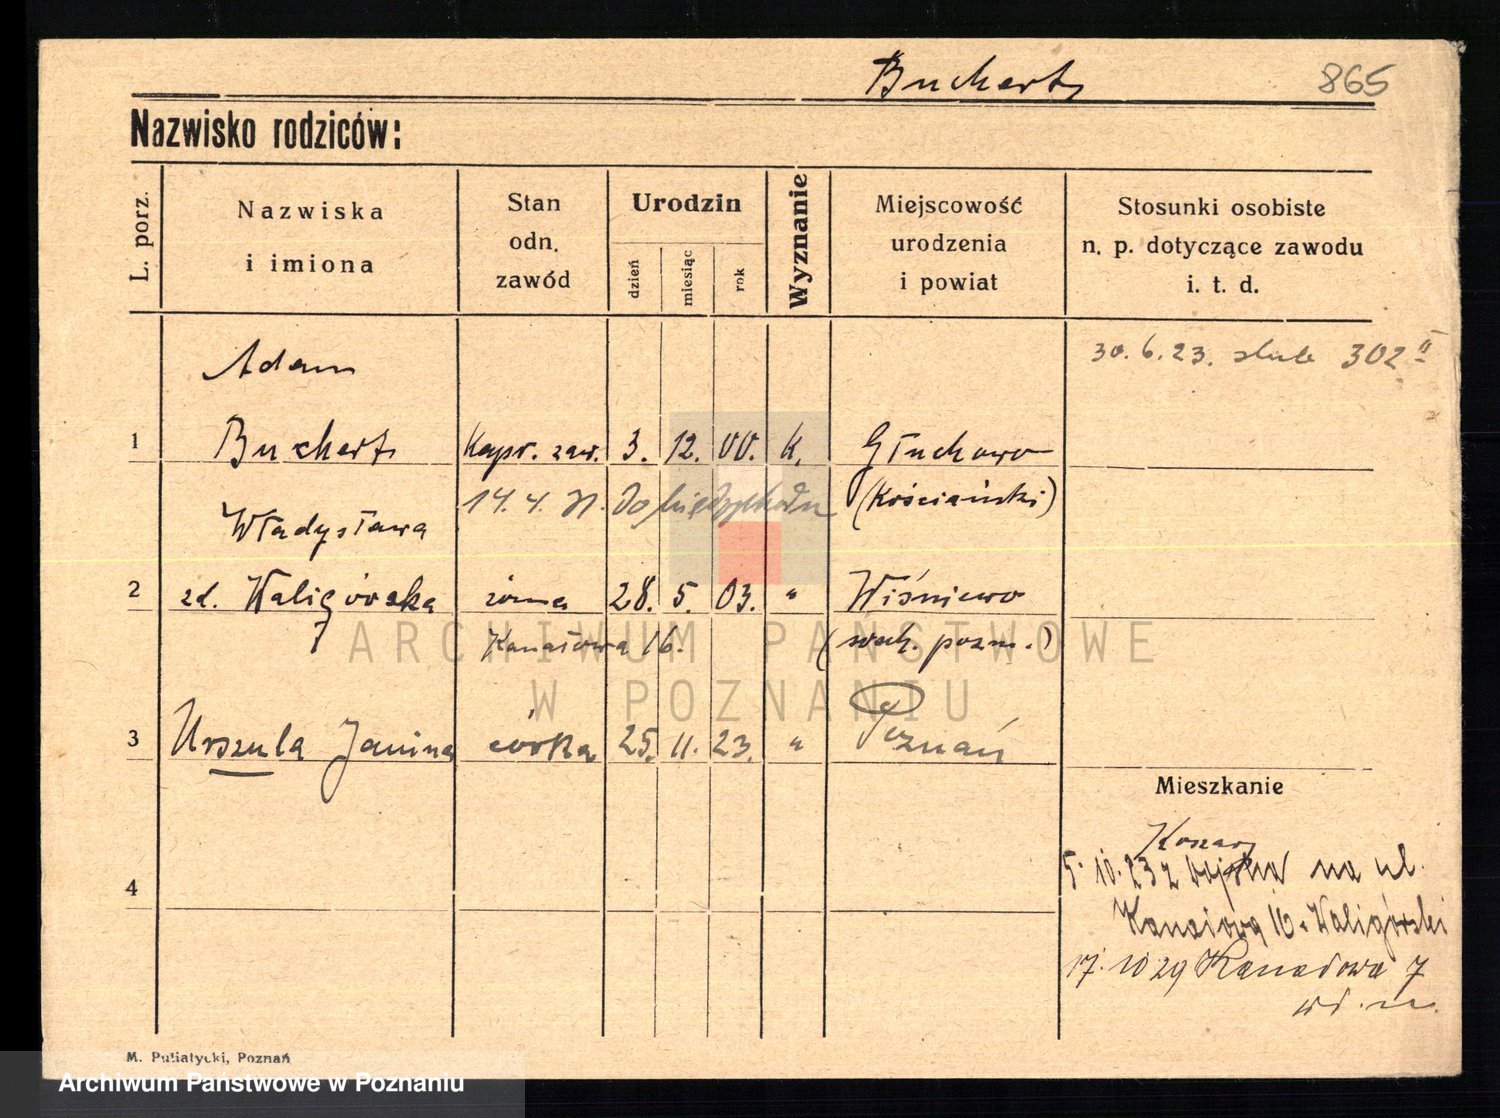 Buchert
865
Nazwisko rodziców:
L. porz.
Nazwiska
i imiona
Stan
odn.
zawód
Urodzin
dzień
miesiąc
rok
Wyznanie
Miejscowość
urodzenia
i powiat
Stosunki osobiste
n. p. dotyczące zawodu
i. t. d.
Adam
30. 6. 23. ślub 302 II
1 Buchert Kapr. zaw. 3. 12. 00. k. Głuchowo
14. 4. do Międzychodu (Kościański)
Władysława
2 zd. Waligórska żona 28. 5. 03. " Wiśniewo
Kanałowa 16. (wsch. pozn.)
3 Urszula Janina córka 25. 11. 23. " Poznań
Mieszkanie
Koszar
4
5. 10. 23 z Wojska na ul.
Kanałową 16. Waligórski
17. 10 29 Kanałowa 7
wł. m.
M. Putiatycki, Poznań
ARCHIWUM PAŃSTWOWE
W POZNANIU
Archiwum Państwowe w Poznaniu